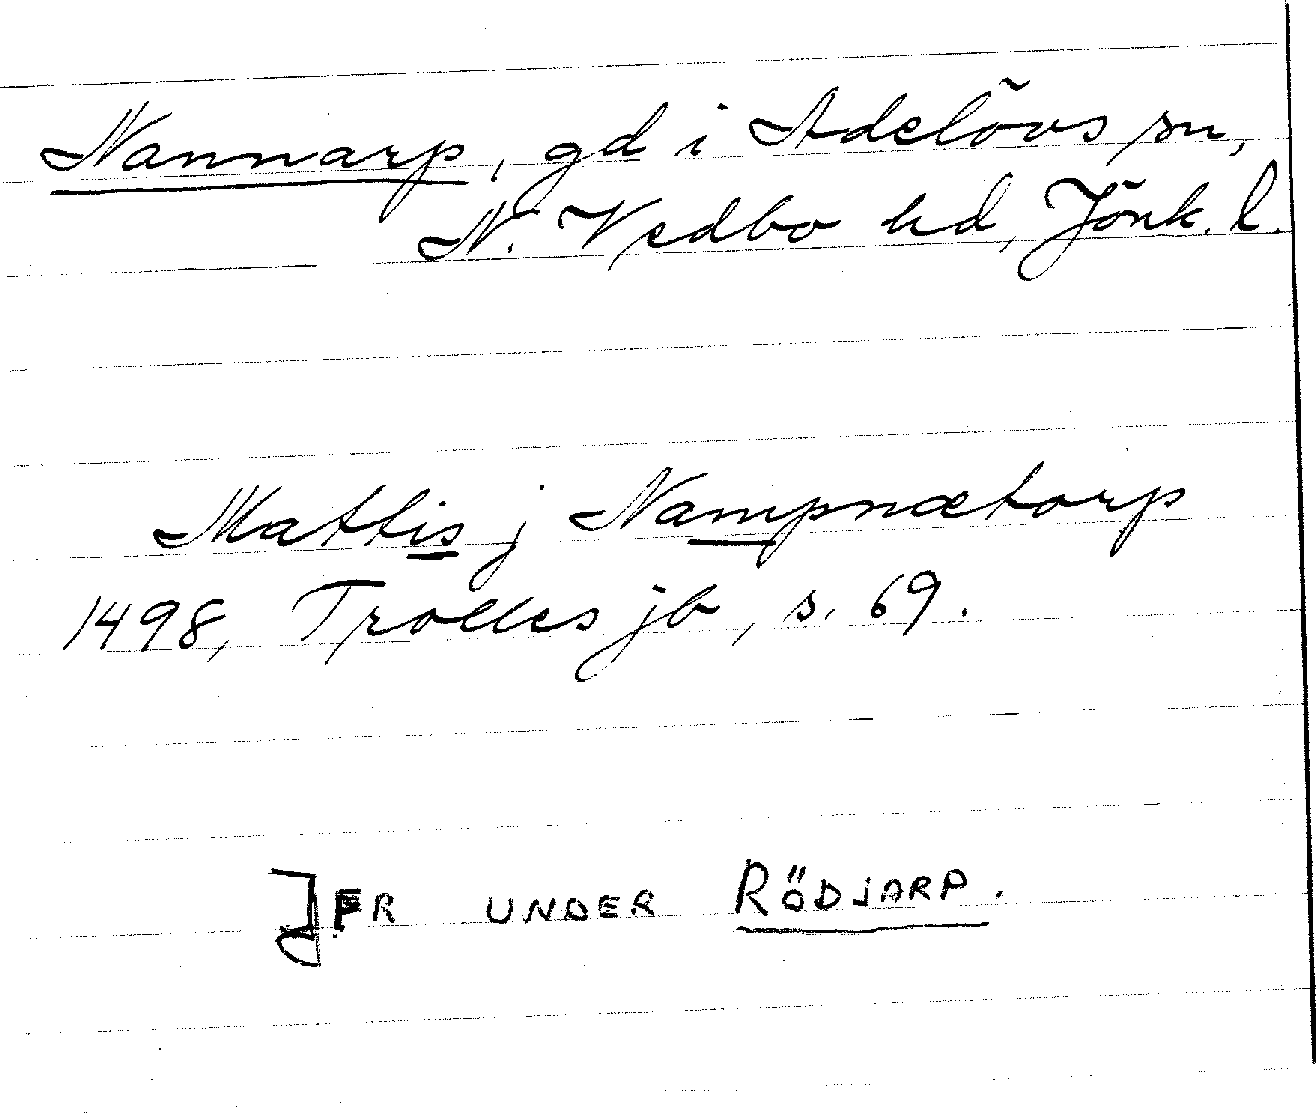 Nannarp, gd i Adelövs sn,
N. Vedbo hd, Jönk. l.
Mattis j Nampnætorp
1498, Trolles jb, s. 69.
JFR UNDER RÖDJARP.